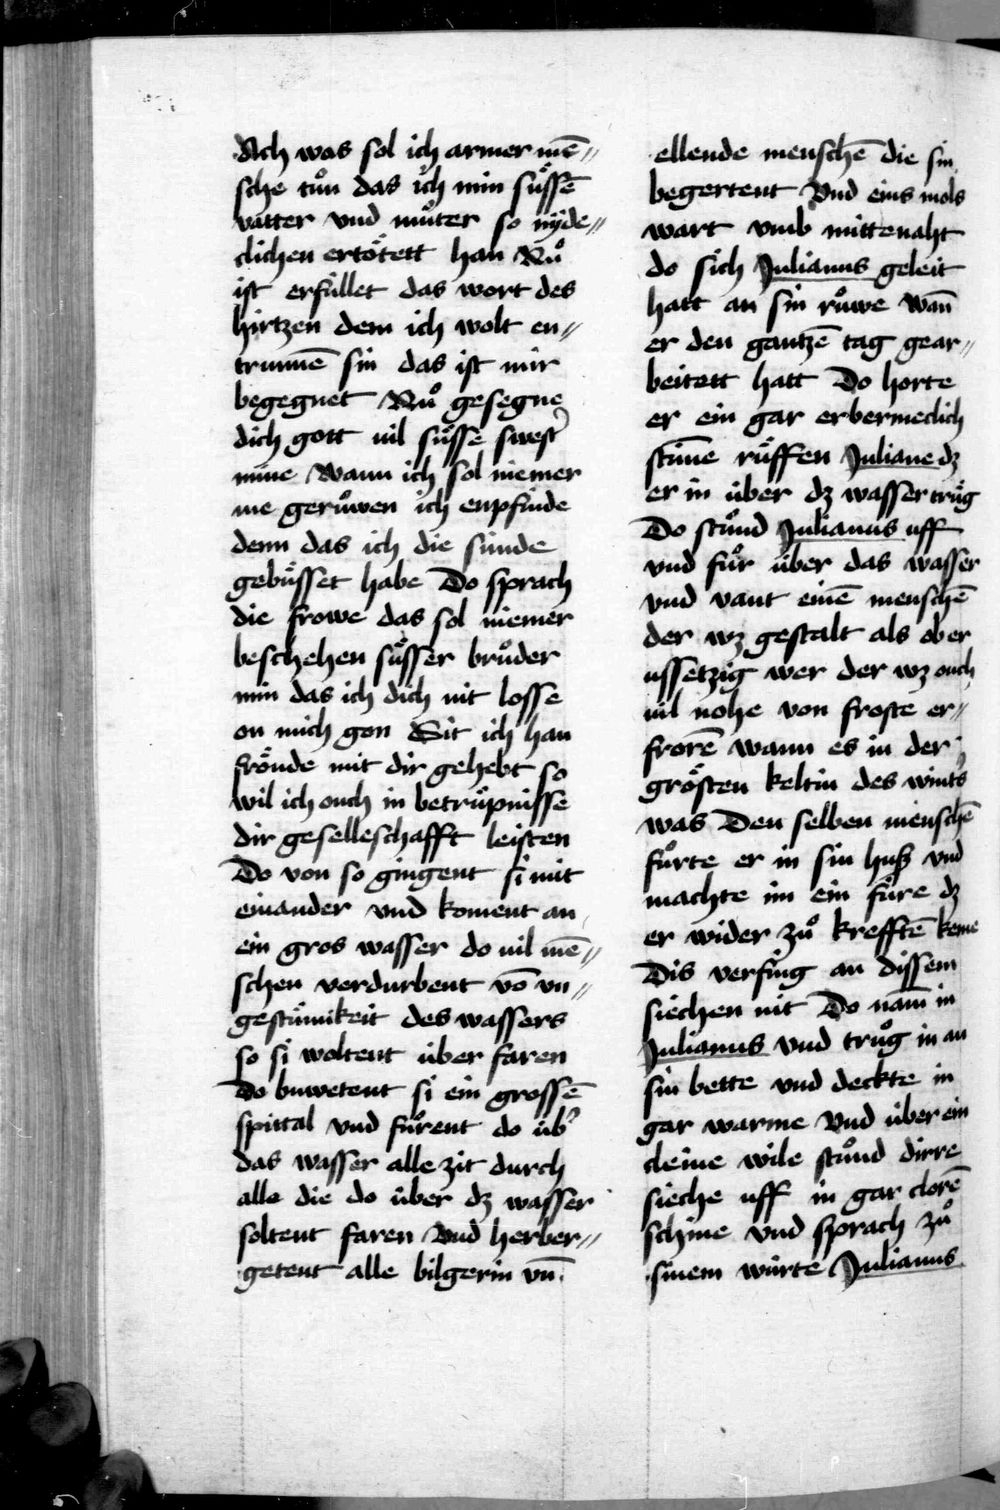 Ach was sol ich armer mē⸗
sche tuͦn das ich min suͤssē
vatter vnd muͦter so nyde⸗
clichen ertoͤtett han Nuͦ
ist erfüllet das wort des
hirtzen dem ich wolt en⸗
trunnē sin das ist mir
begegnet Nuͦ gesegne
dich gott vil suͤsse swest᷑
mine Wann ich sol niemer
me geruͦwen ich enpfinde
denn das ich die sünde
gebuͤsset habe Do sprach
die frowe das sol niemer
beschehen suͤsser bruͦder
min das ich dich nit losse
on mich gon Sit ich han
froͤude mit dir gehebt so
wil ich ouch in betruͤpnisse
dir geselleschafft leisten
Do von so gingent si mit
einander vnd koment an
ein gros wasser do vil mē⸗
schen verdurbent vō vn⸗
gestuͤmikeit des wassers
so si woltent über faren
Do buwetent si ein grossē
spittal vnd fuͦrent do üb᷑
das wasser alle zit durch
alle die do über dz wasser
soltent faren Vnd herber⸗
getent alle bilgerin vn̄
ellende menschē die sin
begertent Vnd eins mols
wart vmb mittenaht
do sich Julianus geleit
hatt an sin ruͦwe wan̄
er den gantzē tag gear⸗
beitett hatt Do horte
er ein gar erbermeclich
stim̄e ruͤffen Juliane dz
er in über dz wasser truͤg
Do stuͦnd Julianus uff
vnd fuͦr über das wasser
vnd vant einē menschē
der wz gestalt als ob er
ussetzig wer der wz ouch
vil nohe von froste er⸗
frorē wann es in der
groͤsten keltin des wint᷑s
was Den selben menschē
fuͦrte er in sin huß vnd
machte im ein füre dz
er wider zuͦ krefftē keme
Dis verfing an dissem
siechen nit Do nam in
Julianus vnd truͦg in an
sin bette vnd deckte in
gar warme Vnd über ein
cleine wile stuͦnd dirre
sieche uff in gar clorē
schine vnd sprach zuͦ
sinem würte Julianus